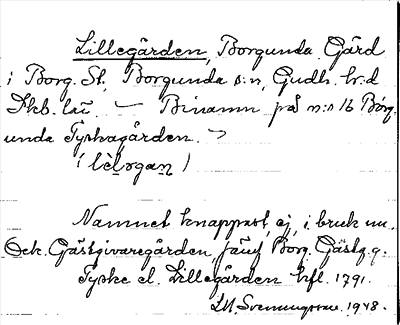 Lillegården, Borgunda. Gård
i Borg. St. Borgunda s:n, Gudh. h:d
Skb. län. — Binamn på n:o 16 Borg.
unda Tyskagården.
(lèlɘgan)
Namnet knappast, ej, i bruk nu.
Ock. Gästgivaregården, jämf Borg. Gästg.g.
Tyske el. Lillegården hfl. 1791.
1948.